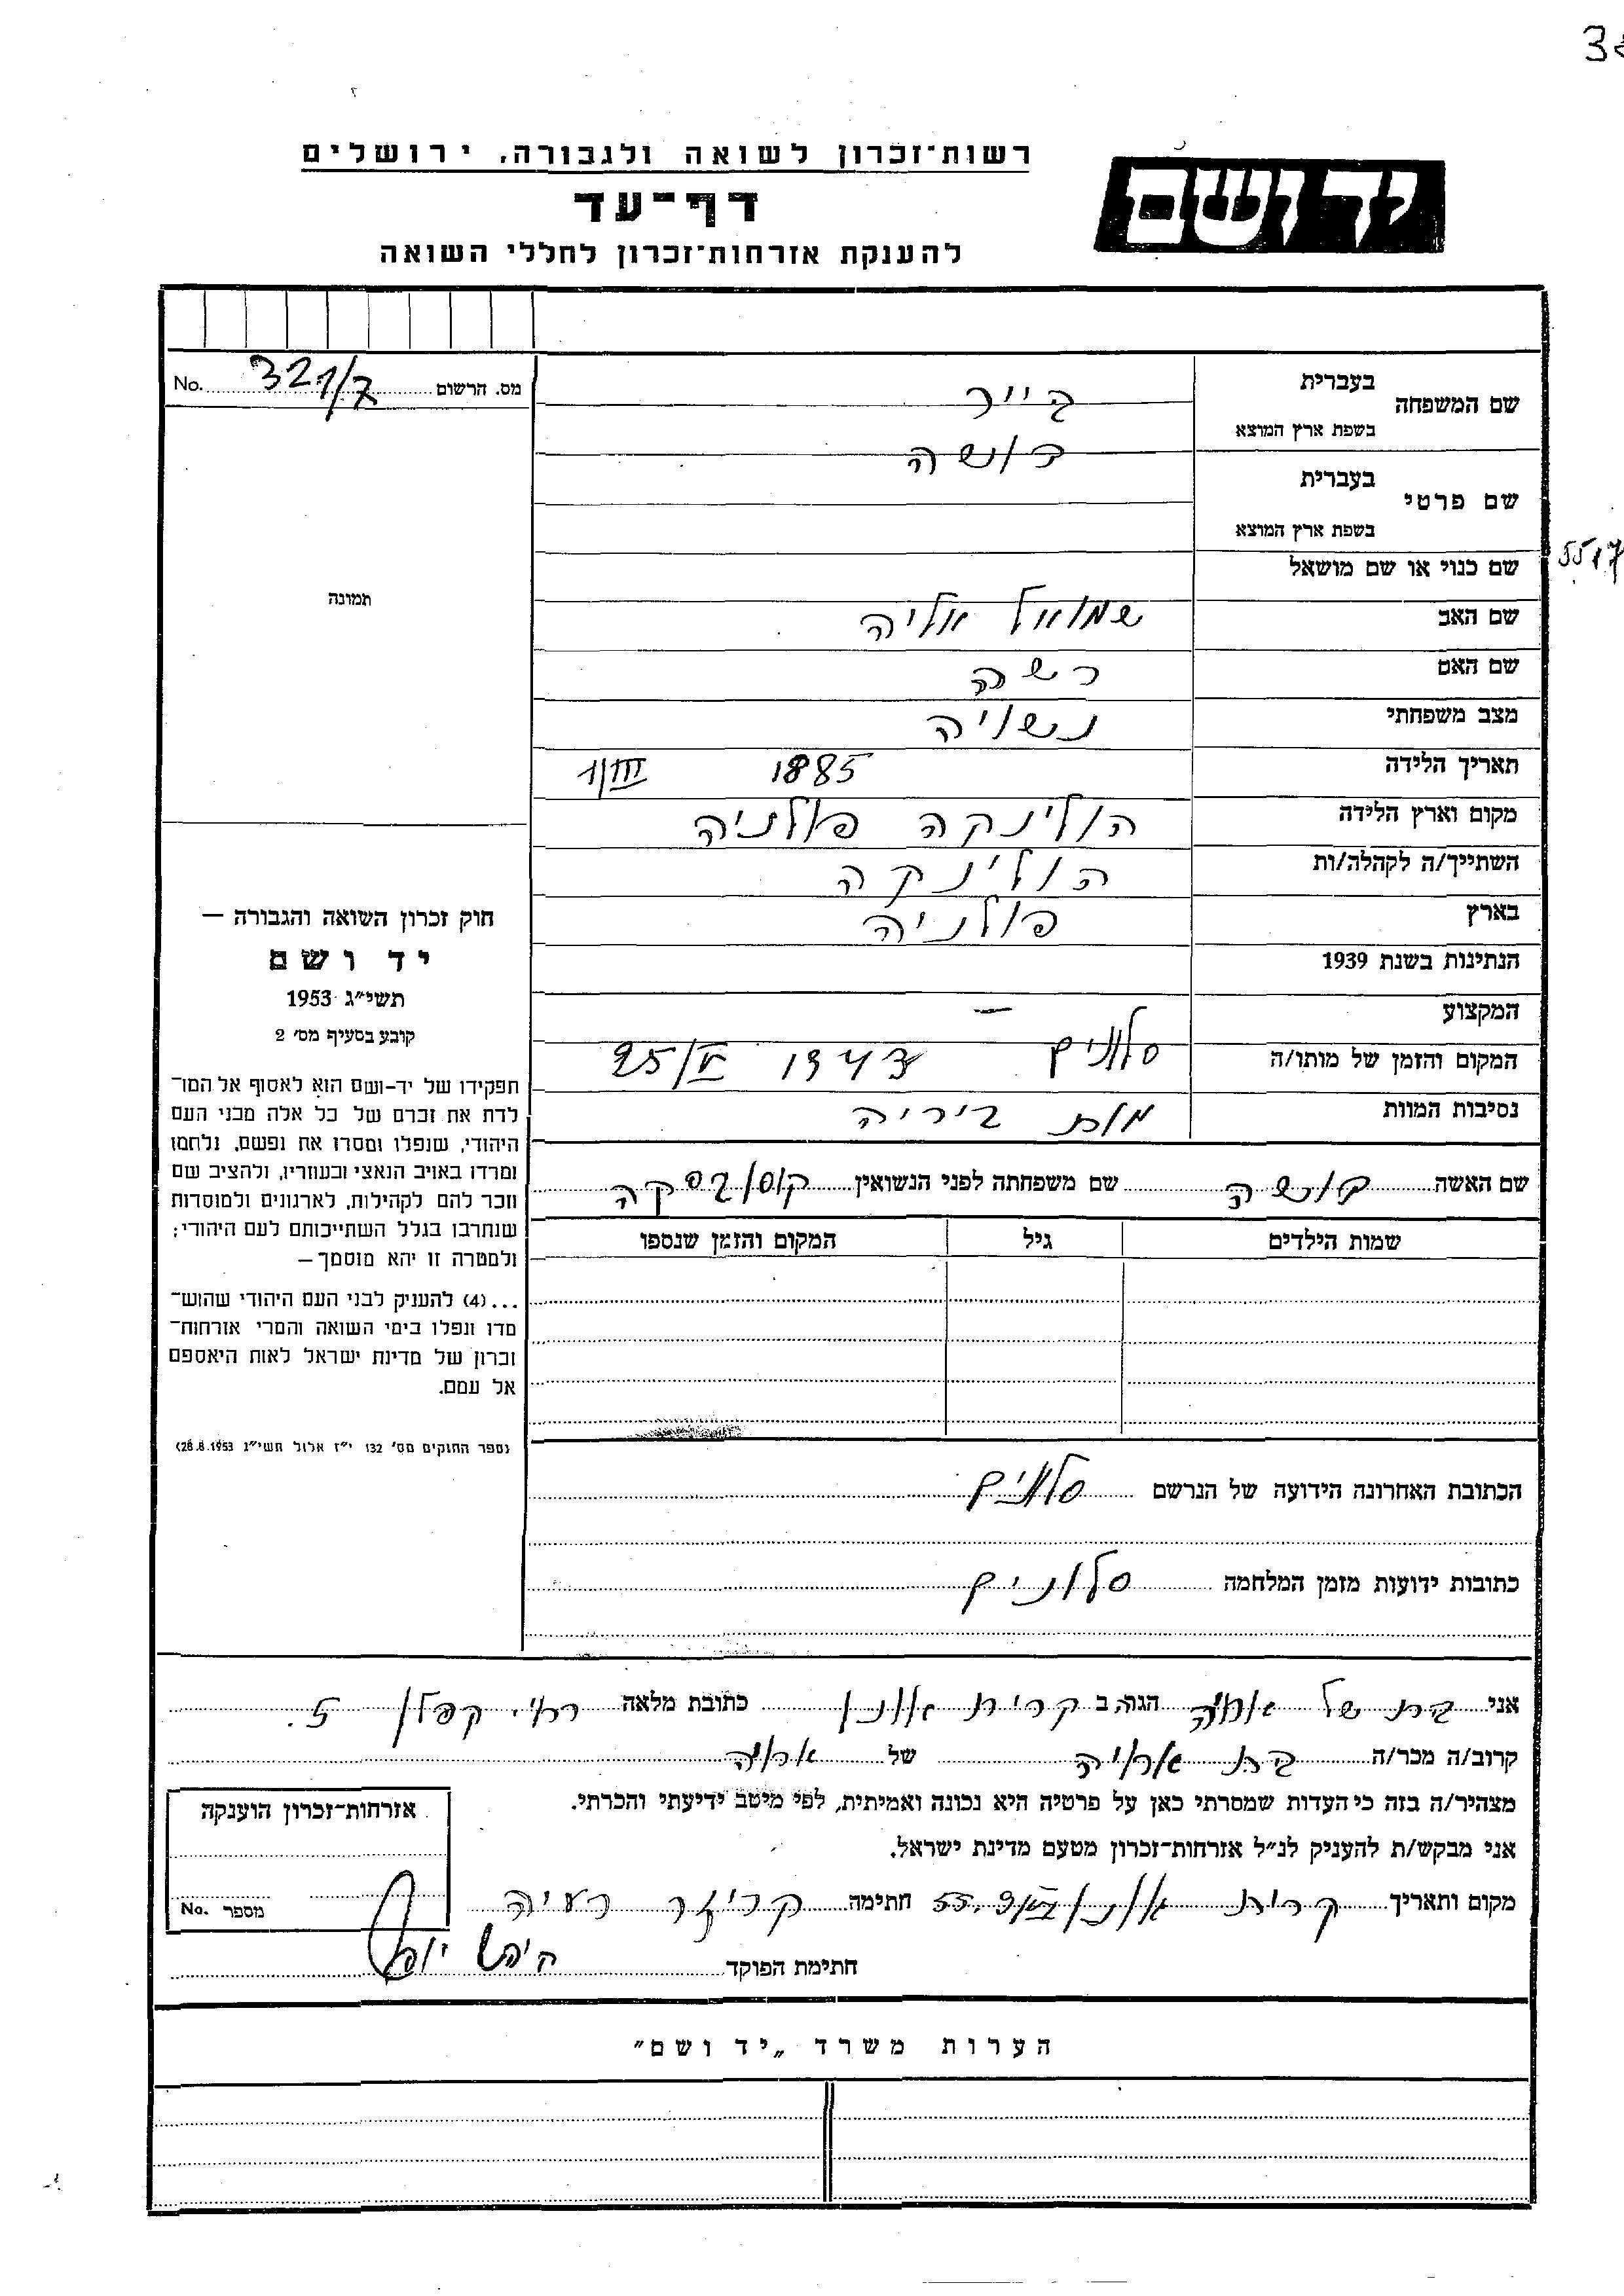 רשות־זכרון לשואה ולגבורה, ירושלים
יד ושם
דף־עד
להענקת אזרחות־זכרון לחללי השואה
מס. הרשום 321/7 No.
שם המשפחה בעברית בייר
בשפת ארץ המוצא
שם פרטי בעברית
בשפת ארץ המוצא
שם כנוי או שם מושאל
שם האב שמואל אליה
שם האם רשה
מצב משפחתי נשויה
תאריך הלידה 1885 1/III
מקום וארץ הלידה הולינקה פולניה
השתייך/ה לקהלה/ות הולינקה
בארץ פולניה
הנתינות בשנת 1939
המקצוע —
המקום והזמן של מותו/ה סלונים
נסיבות המוות מות ביריה
שם האשה שם משפחתה לפני הנשואין
שמות הילדים גיל המקום והזמן שנספו
הכתובת האחרונה הידועה של הנרשם סלונים
כתובות ידועות מזמן המלחמה סלונים
תמונה
חוק זכרון השואה והגבורה —
יד ושם
תשי״ג 1953
קובע בסעיף מס׳ 2
תפקידו של יד-ושם הוא לאסוף אל המו־
לדת את זכרם של כל אלה מבני העם
היהודי, שנפלו ומסרו את נפשם, נלחמו
ומרדו באויב הנאצי ובעוזריו, ולהציב שם
וזכר להם לקהילות, לארגונים ולמוסדות
שנחרבו בגלל השתייכותם לעם היהודי;
ולמטרה זו יהא מוסמך —
...(4) להעניק לבני העם היהודי שהוש־
מדו ונפלו בימי השואה והמרי אזרחות־
זכרון של מדינת ישראל לאות היאספם
אל עמם.
(ספר החוקים מס׳ 132 י״ז אלול תשי״ג 28.8.1953)
אני בת של הגר/ה ב קרית אונו כתובת מלאה קפלן 5.
קרוב/ה מכר/ה בת של
מצהיר/ה בזה כי העדות שמסרתי כאן על פרטיה היא נכונה ואמיתית, לפי מיטב ידיעתי והכרתי.
אני מבקש/ת להעניק לנ״ל אזרחות־זכרון מטעם מדינת ישראל.
מקום ותאריך קרית אונו חתימה
חתימת הפוקד
אזרחות־זכרון הוענקה
מספר No.
הערות משרד „יד ושם״